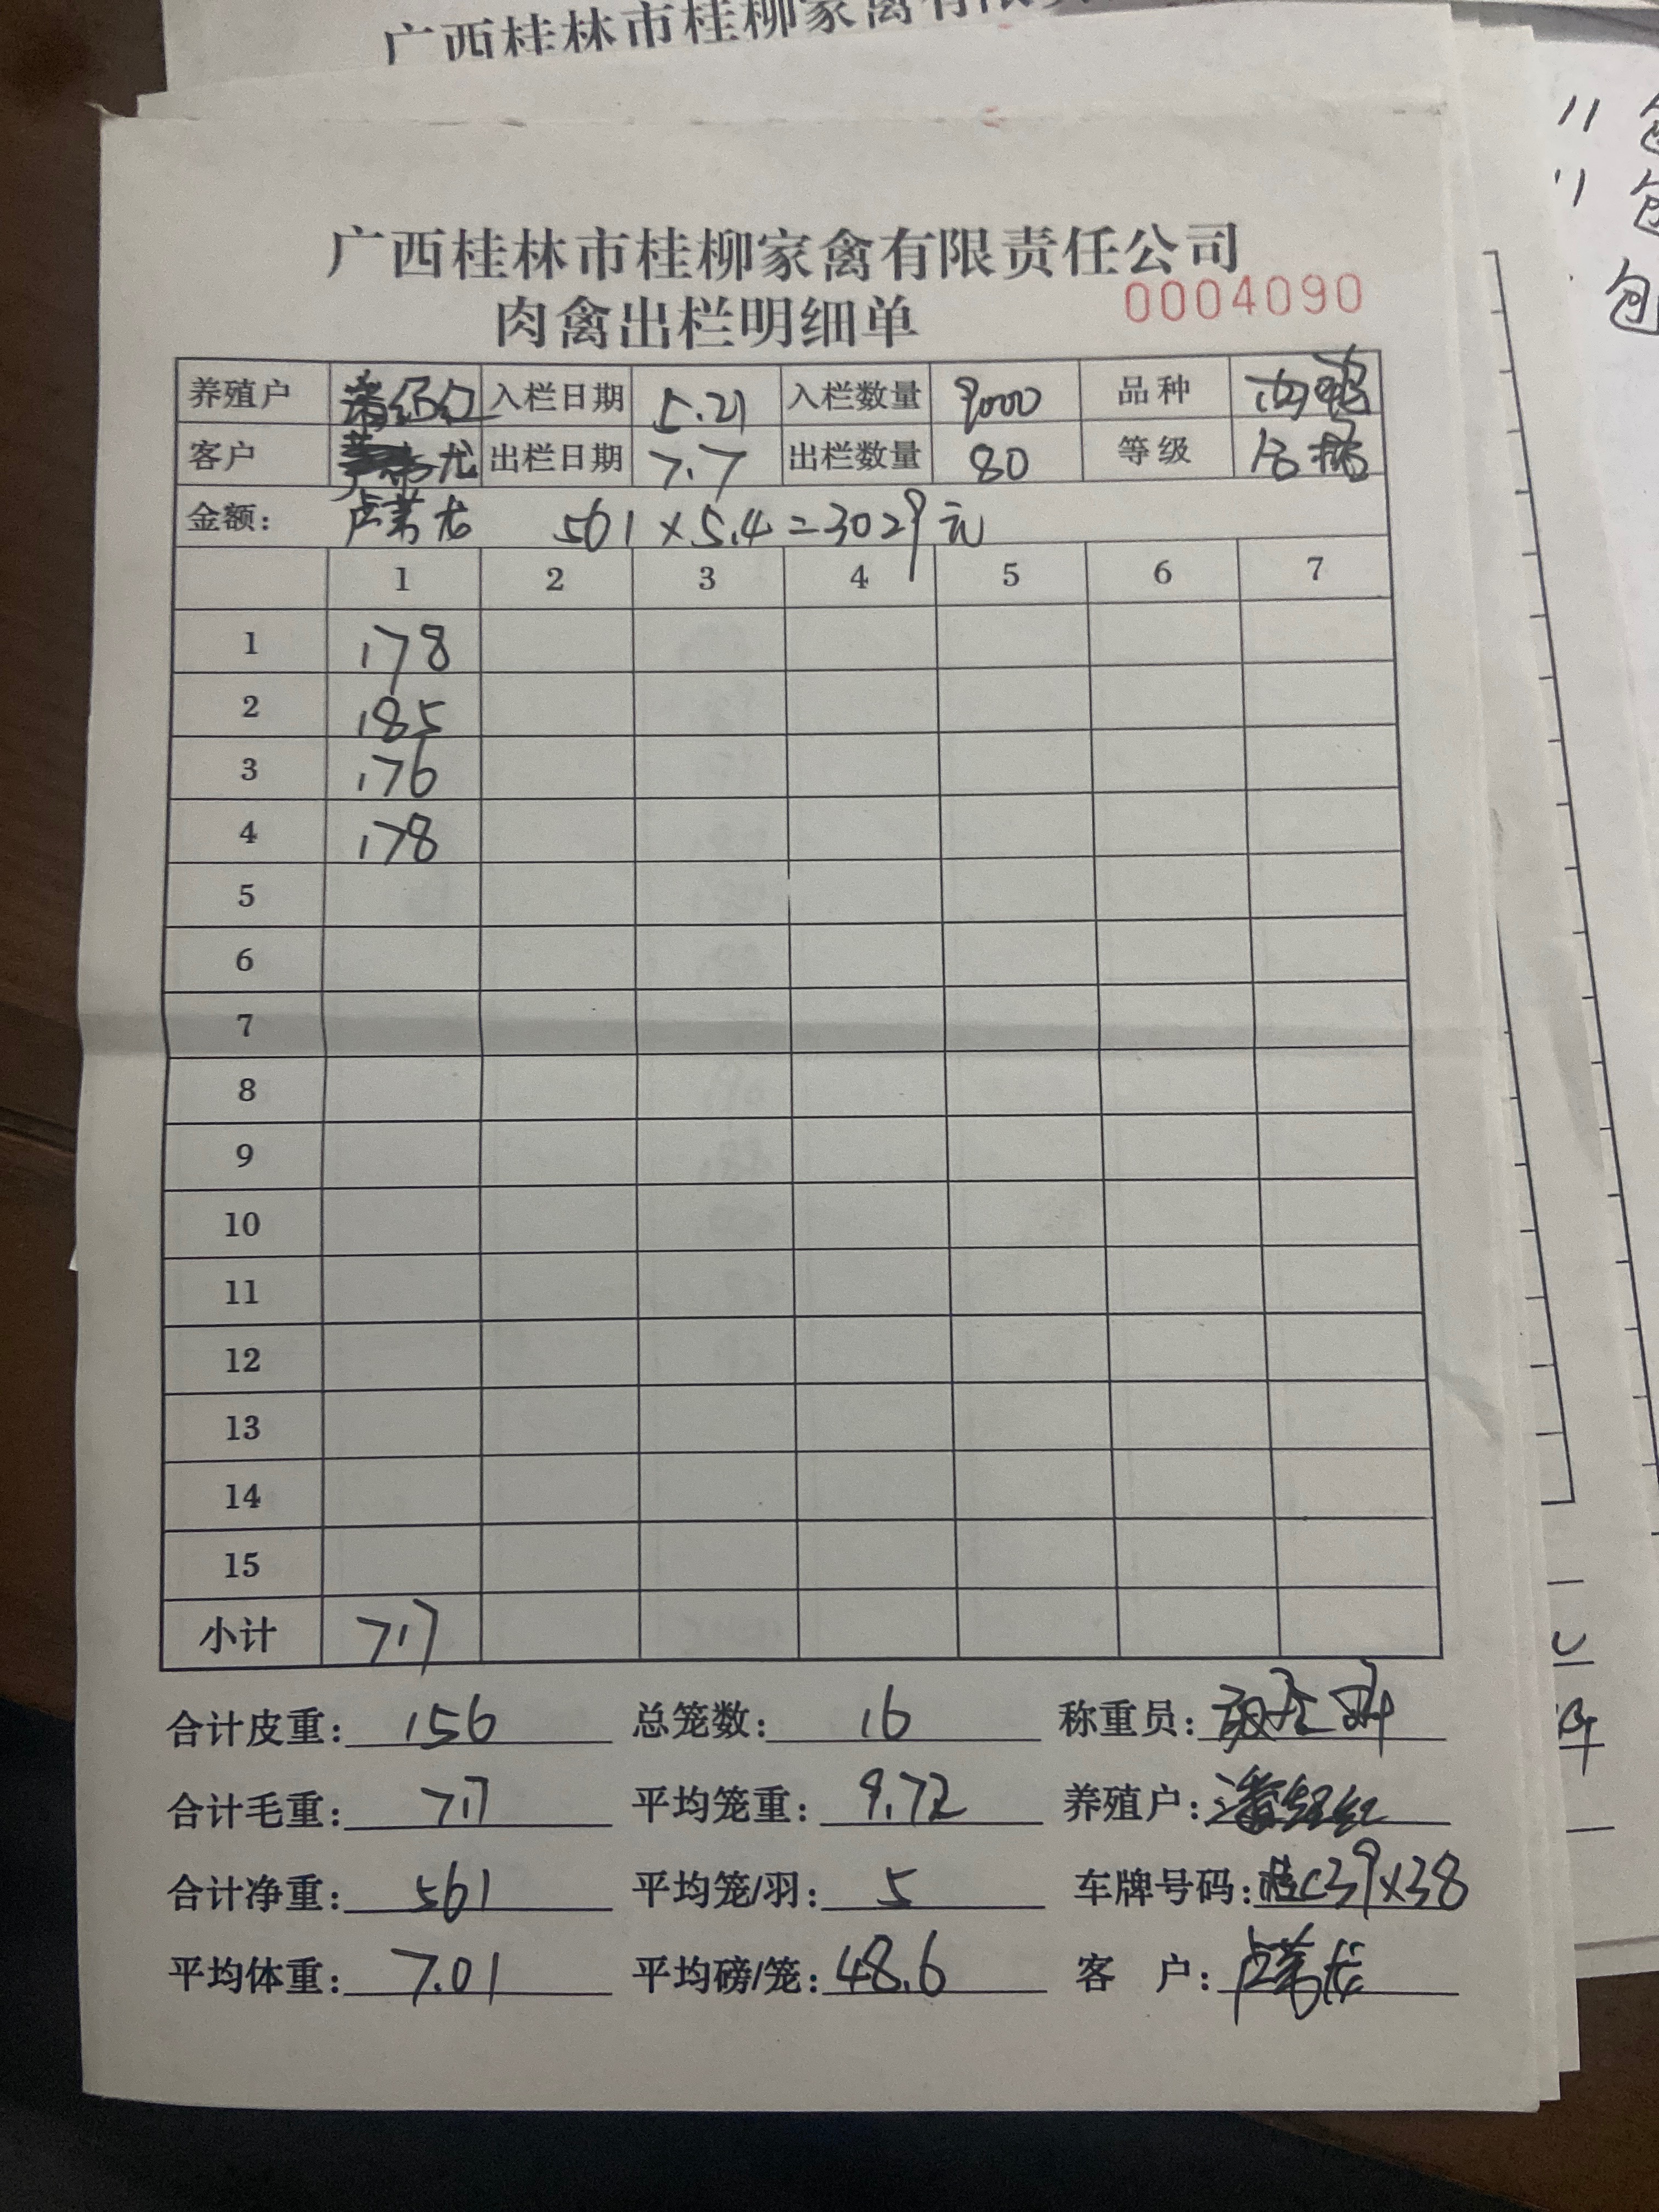 广西桂林市桂柳家禽有限责任公司
广西桂林市桂柳家禽有限责任公司
肉禽出栏明细单 0004090
养殖户 入栏日期 5.21 入栏数量 9000 品种
客户 龙 出栏日期 7.7 出栏数量 80 等级 合格
金额: 卢 龙 561×5.4=3029元
1 2 3 4 5 6 7
1 178
2 185
3 176
4 178
5
6
7
8
9
10
11
12
13
14
15
小计 717
合计皮重: 156 总笼数: 16 称重员:
合计毛重: 717 平均笼重: 9.72 养殖户: 潘
合计净重: 561 平均笼/羽: 5 车牌号码: 桂C39X38
平均体重: 7.01 平均磅/笼: 48.6 客户: 卢 龙
11 包
11 包
包